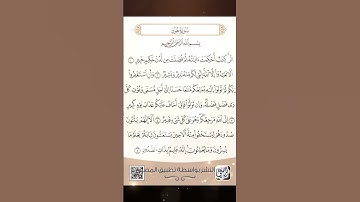 سورة هود
بسم الله الرحمن الرحيم
الر كتب أحكمت ءايته ثم فصلت من لدن حكيم خبير ١
ألا تعبدوا إلا الله إنني لكم منه نذير وبشير ٢ وأن استغفروا
ربكم ثم توبوا إليه يمتعكم متعا حسنا إلى أجل مسمى ويؤت كل
ذي فضل فضله وإن تولوا فإني أخاف عليكم عذاب يوم كبير ٣
إلى الله مرجعكم وهو على كل شيء قدير ٤ ألا إنهم يثنون
صدورهم ليستخفوا منه ألا حين يستغشون ثيابهم يعلم ما
يسرون وما يعلنون إنه عليم بذات الصدور ٥
النشر بواسطة تطبيق